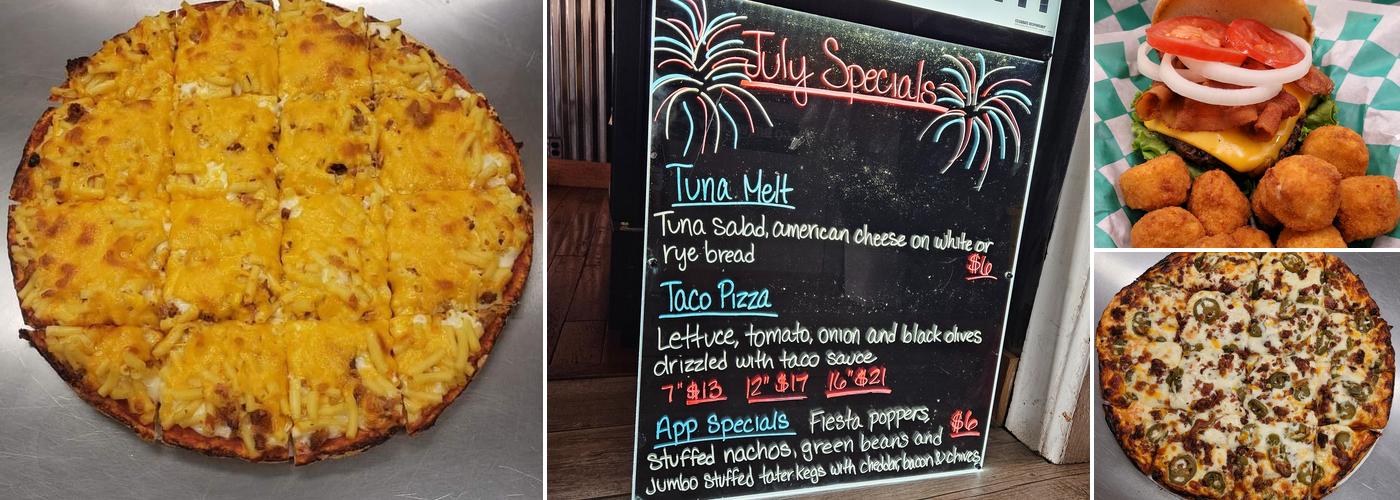 July Specials
Tuna Melt
Tuna salad, american cheese on white or
rye bread
$6
Taco Pizza
Lettuce, tomato, onion and black olives
drizzled with taco sauce
7" $13 12" $17 16" $21
App Specials Fiesta poppers, $6
stuffed nachos, green beans and
jumbo stuffed tater kegs with cheddar, bacon & chives